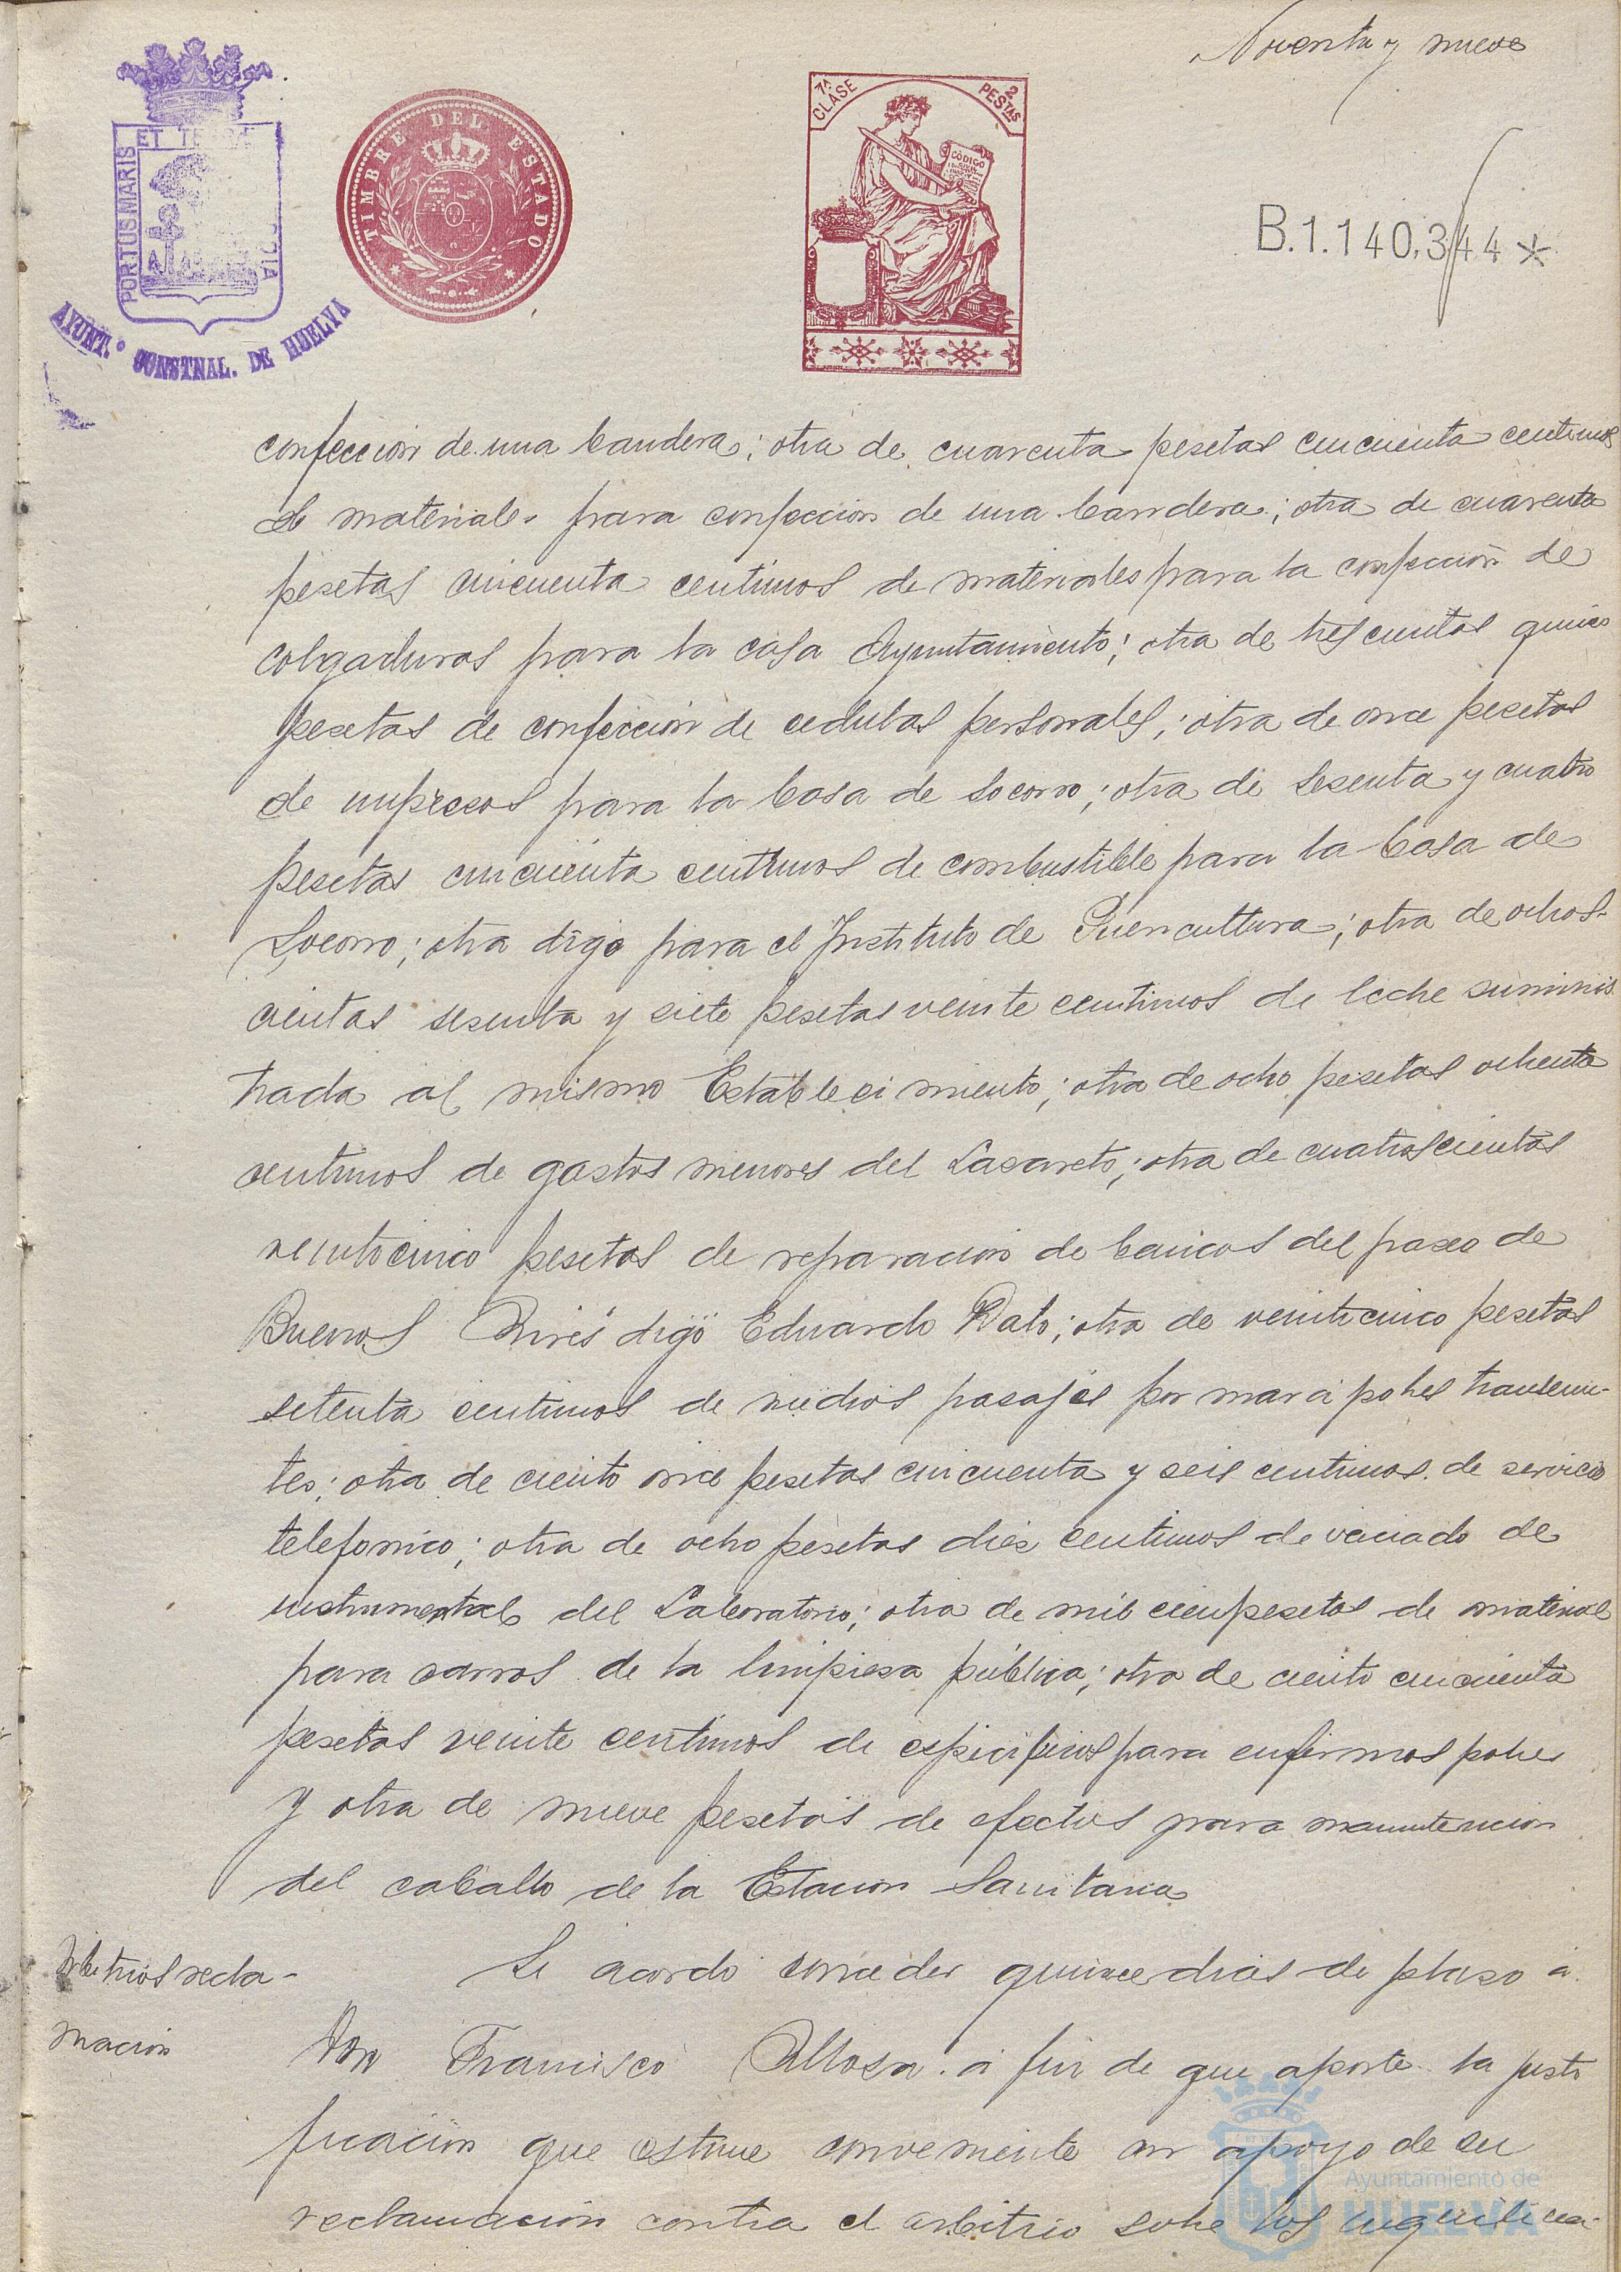 Noventa y nueve
PORTUS MARIS ET TERRAE CUSTODIA
AYUNT.º CONSTNAL. DE HUELVA
TIMBRE DEL ESTADO
7ª CLASE
2 PESTAS
CÓDIGO
B.1.140.344*
confección de una bandera; otra de cuarenta pesetas cincuenta centimos
de materiales para confeccion de una bandera; otra de cuarenta
pesetas cincuenta centimos de materiales para la confeccion de
colgaduras para la casa Ayuntamiento; otra de trescientas quince
pesetas de confección de cedulas personales; otra de once pesetas
de impresos para la Casa de Socorro; otra de sesenta y cuatro
pesetas cincuenta centimos de combustible para la Casa de
Socorro; otra digo para el Instituto de Puericultura; otra de ochos-
cientas sesenta y siete pesetas veinte centimos de leche suminis
trada al mismo Establecimiento; otra de ocho pesetas ochenta
centimos de gastos menores del Lazareto; otra de cuatroscientas
veinticinco pesetas de reparacion de bancos del paseo de
Buenos Aires digo Eduardo Dato; otra de veinticinco pesetas
setenta centimos de medios pasajes por mar á pobres transeun-
tes; otra de ciento once pesetas cincuenta y seis centimos de servicio
telefonico; otra de ocho pesetas diez centimos de vaciado de
instrumental del Laboratorio; otra de mil cien pesetas de material
para carros de la limpieza pública; otra de ciento cincuenta
pesetas veinte centimos de especificos para enfermos pobres
y otra de nueve pesetas de efectos para manutencion
del caballo de la Estacion Sanitaria
Arbitrios recla-
macion
Se acordó conceder quince dias de plazo á
Don Francisco a fin de que aporte la justi
ficacion que estime conveniente en apoyo de su
reclamacion contra el arbitrio sobre los inquilina-
Ayuntamiento de
HUELVA